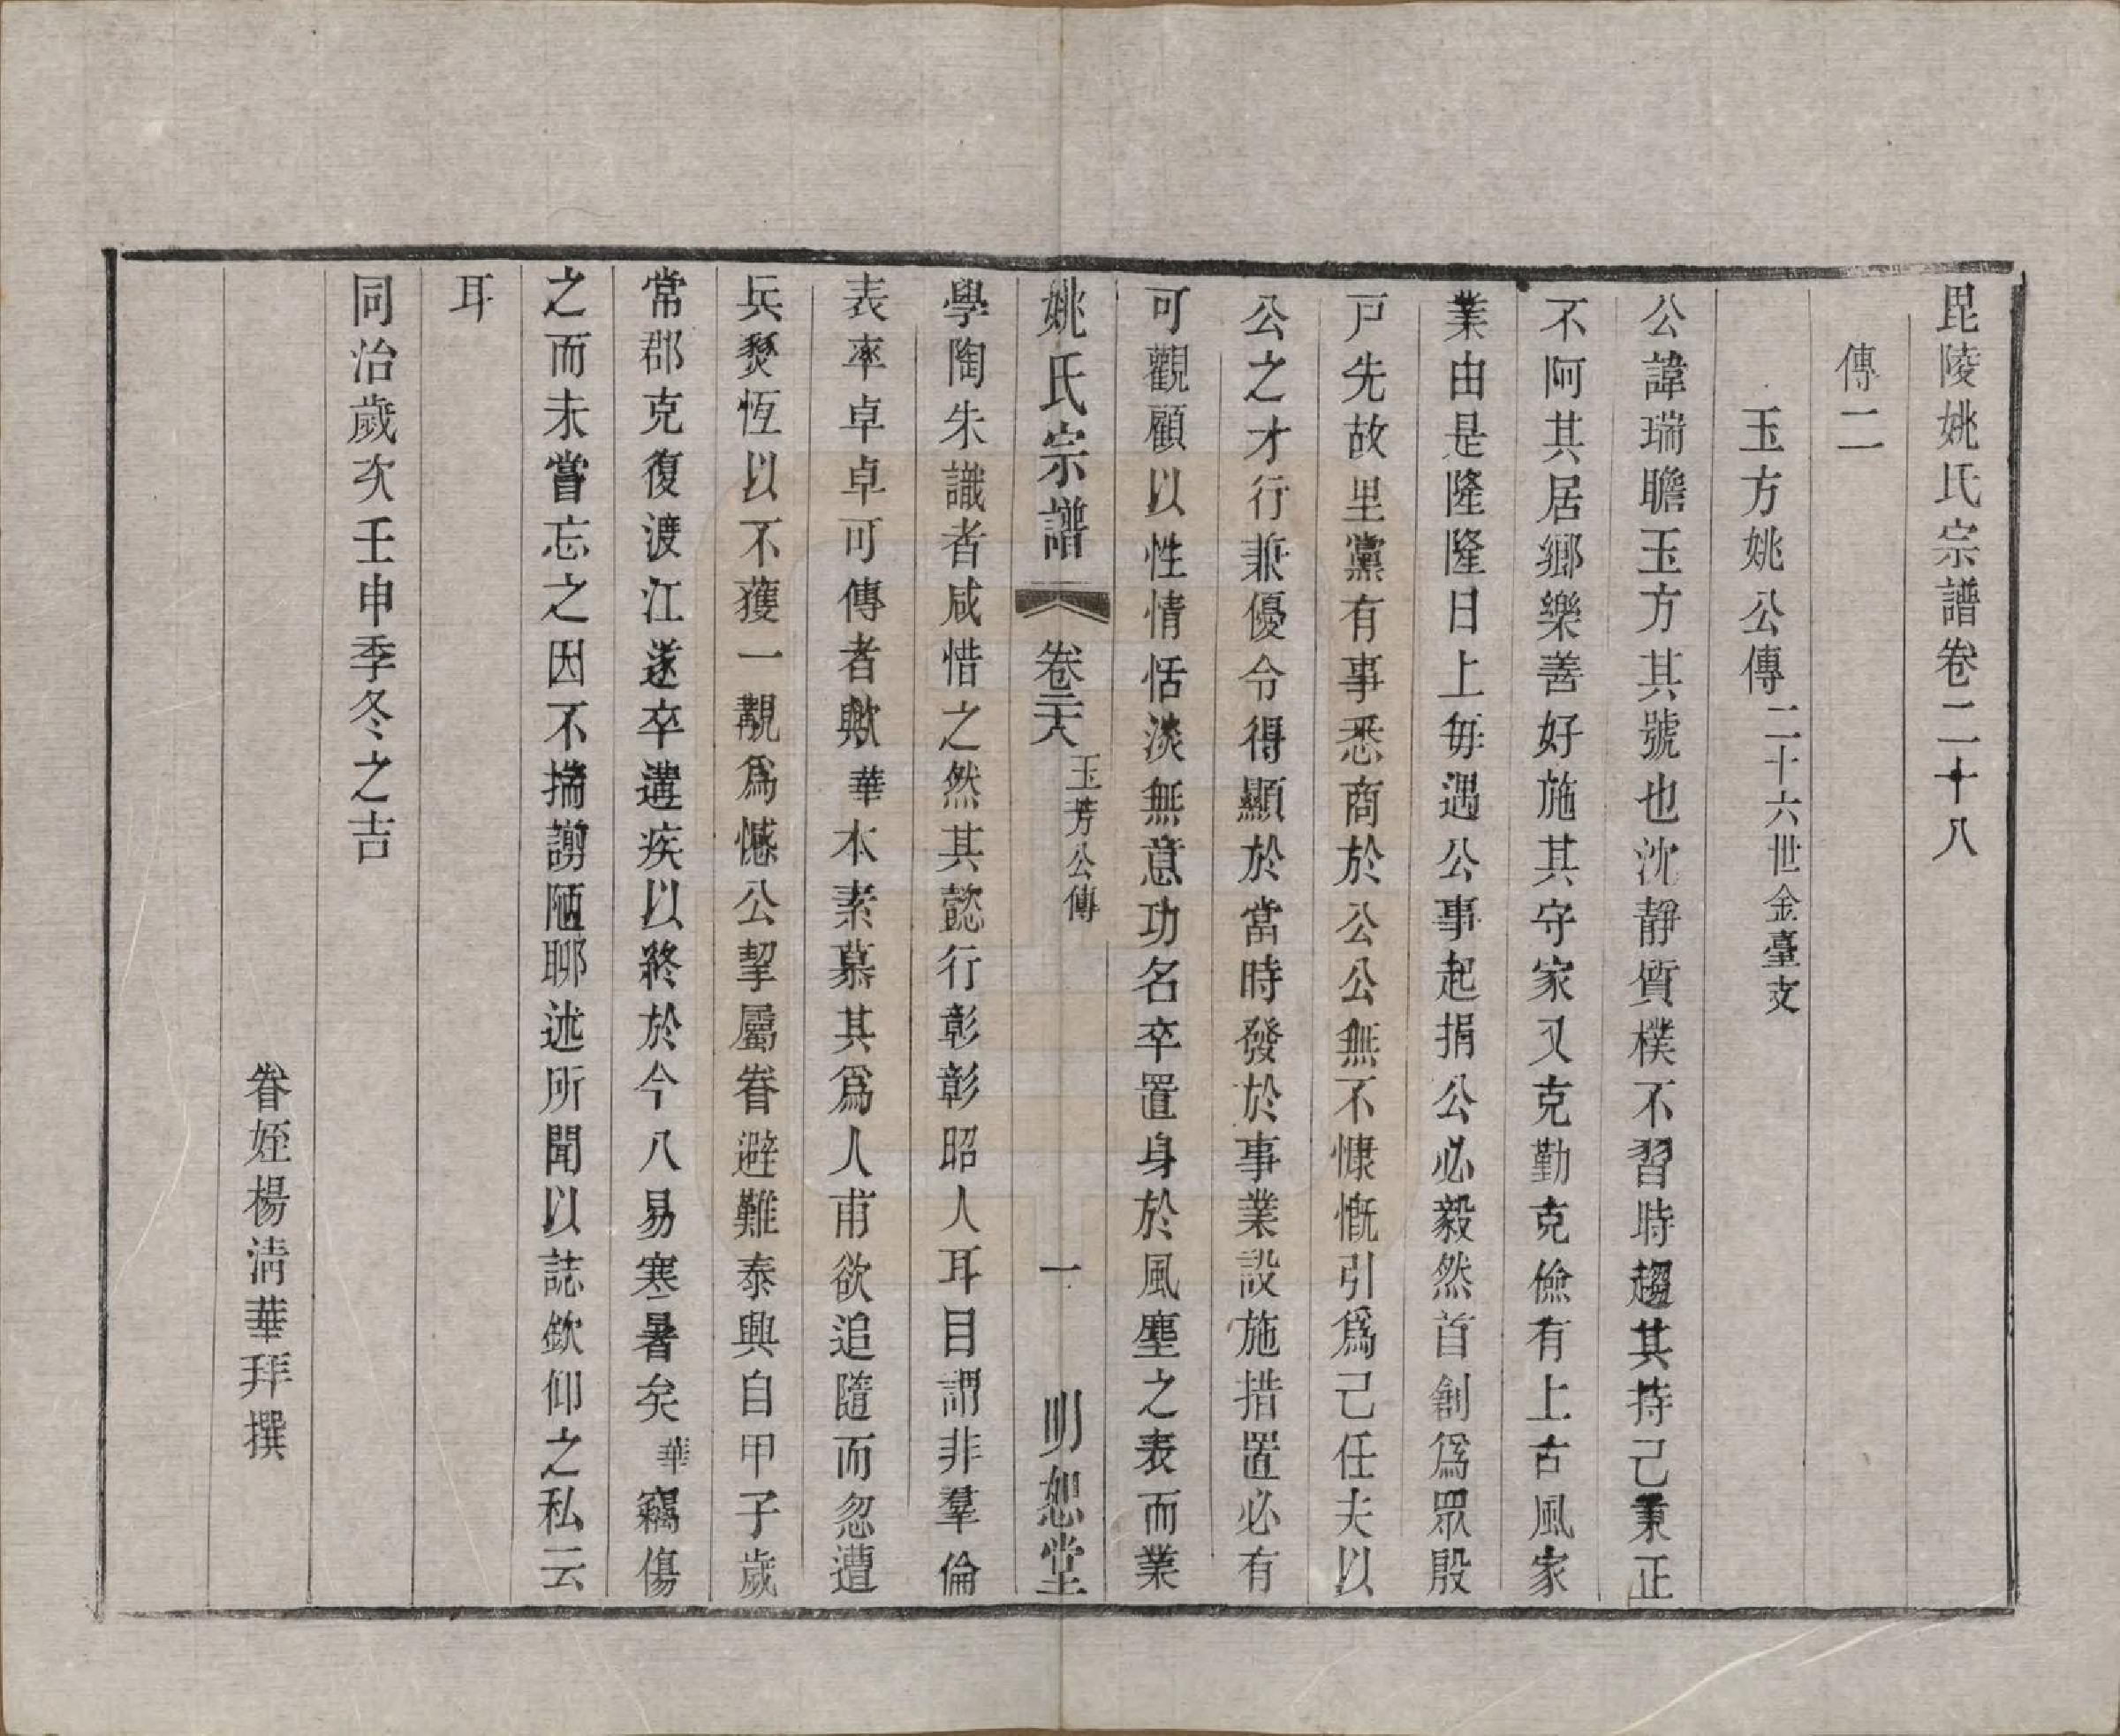 毘陵姚氏宗譜卷二十八
傳二
玉方姚公傳二十六世金臺支
公諱瑞瞻玉方其號也沈靜質樸不習時趨其持己秉正
不阿其居鄉樂善好施其守家又克勤克儉有上古風家
業由是隆隆日上每遇公事起捐公必毅然首創爲眾殷
戸先故里黨有事悉商於公公無不慷慨引爲己任夫以
公之才行兼優令得顯於當時發於事業設施措置必有
可觀顧以性情恬淡無意功名卒置身於風塵之表而業
姚氏宗譜 卷二十八 玉芳公傳 一 明恕堂
學陶朱識者咸惜之然其懿行彰彰昭人耳目謂非羣倫
表率卓卓可傳者歟華本素慕其爲人甫欲追隨而忽遭
兵燹恆以不獲一覯爲憾公挈屬眷避難泰興自甲子歲
常郡克復渡江遂卒遘疾以終於今八易寒暑矣華竊傷
之而未嘗忘之因不揣謭陋聊述所聞以誌欽仰之私云
耳
同治歲次壬申季冬之吉
眷姪楊淸華拜撰